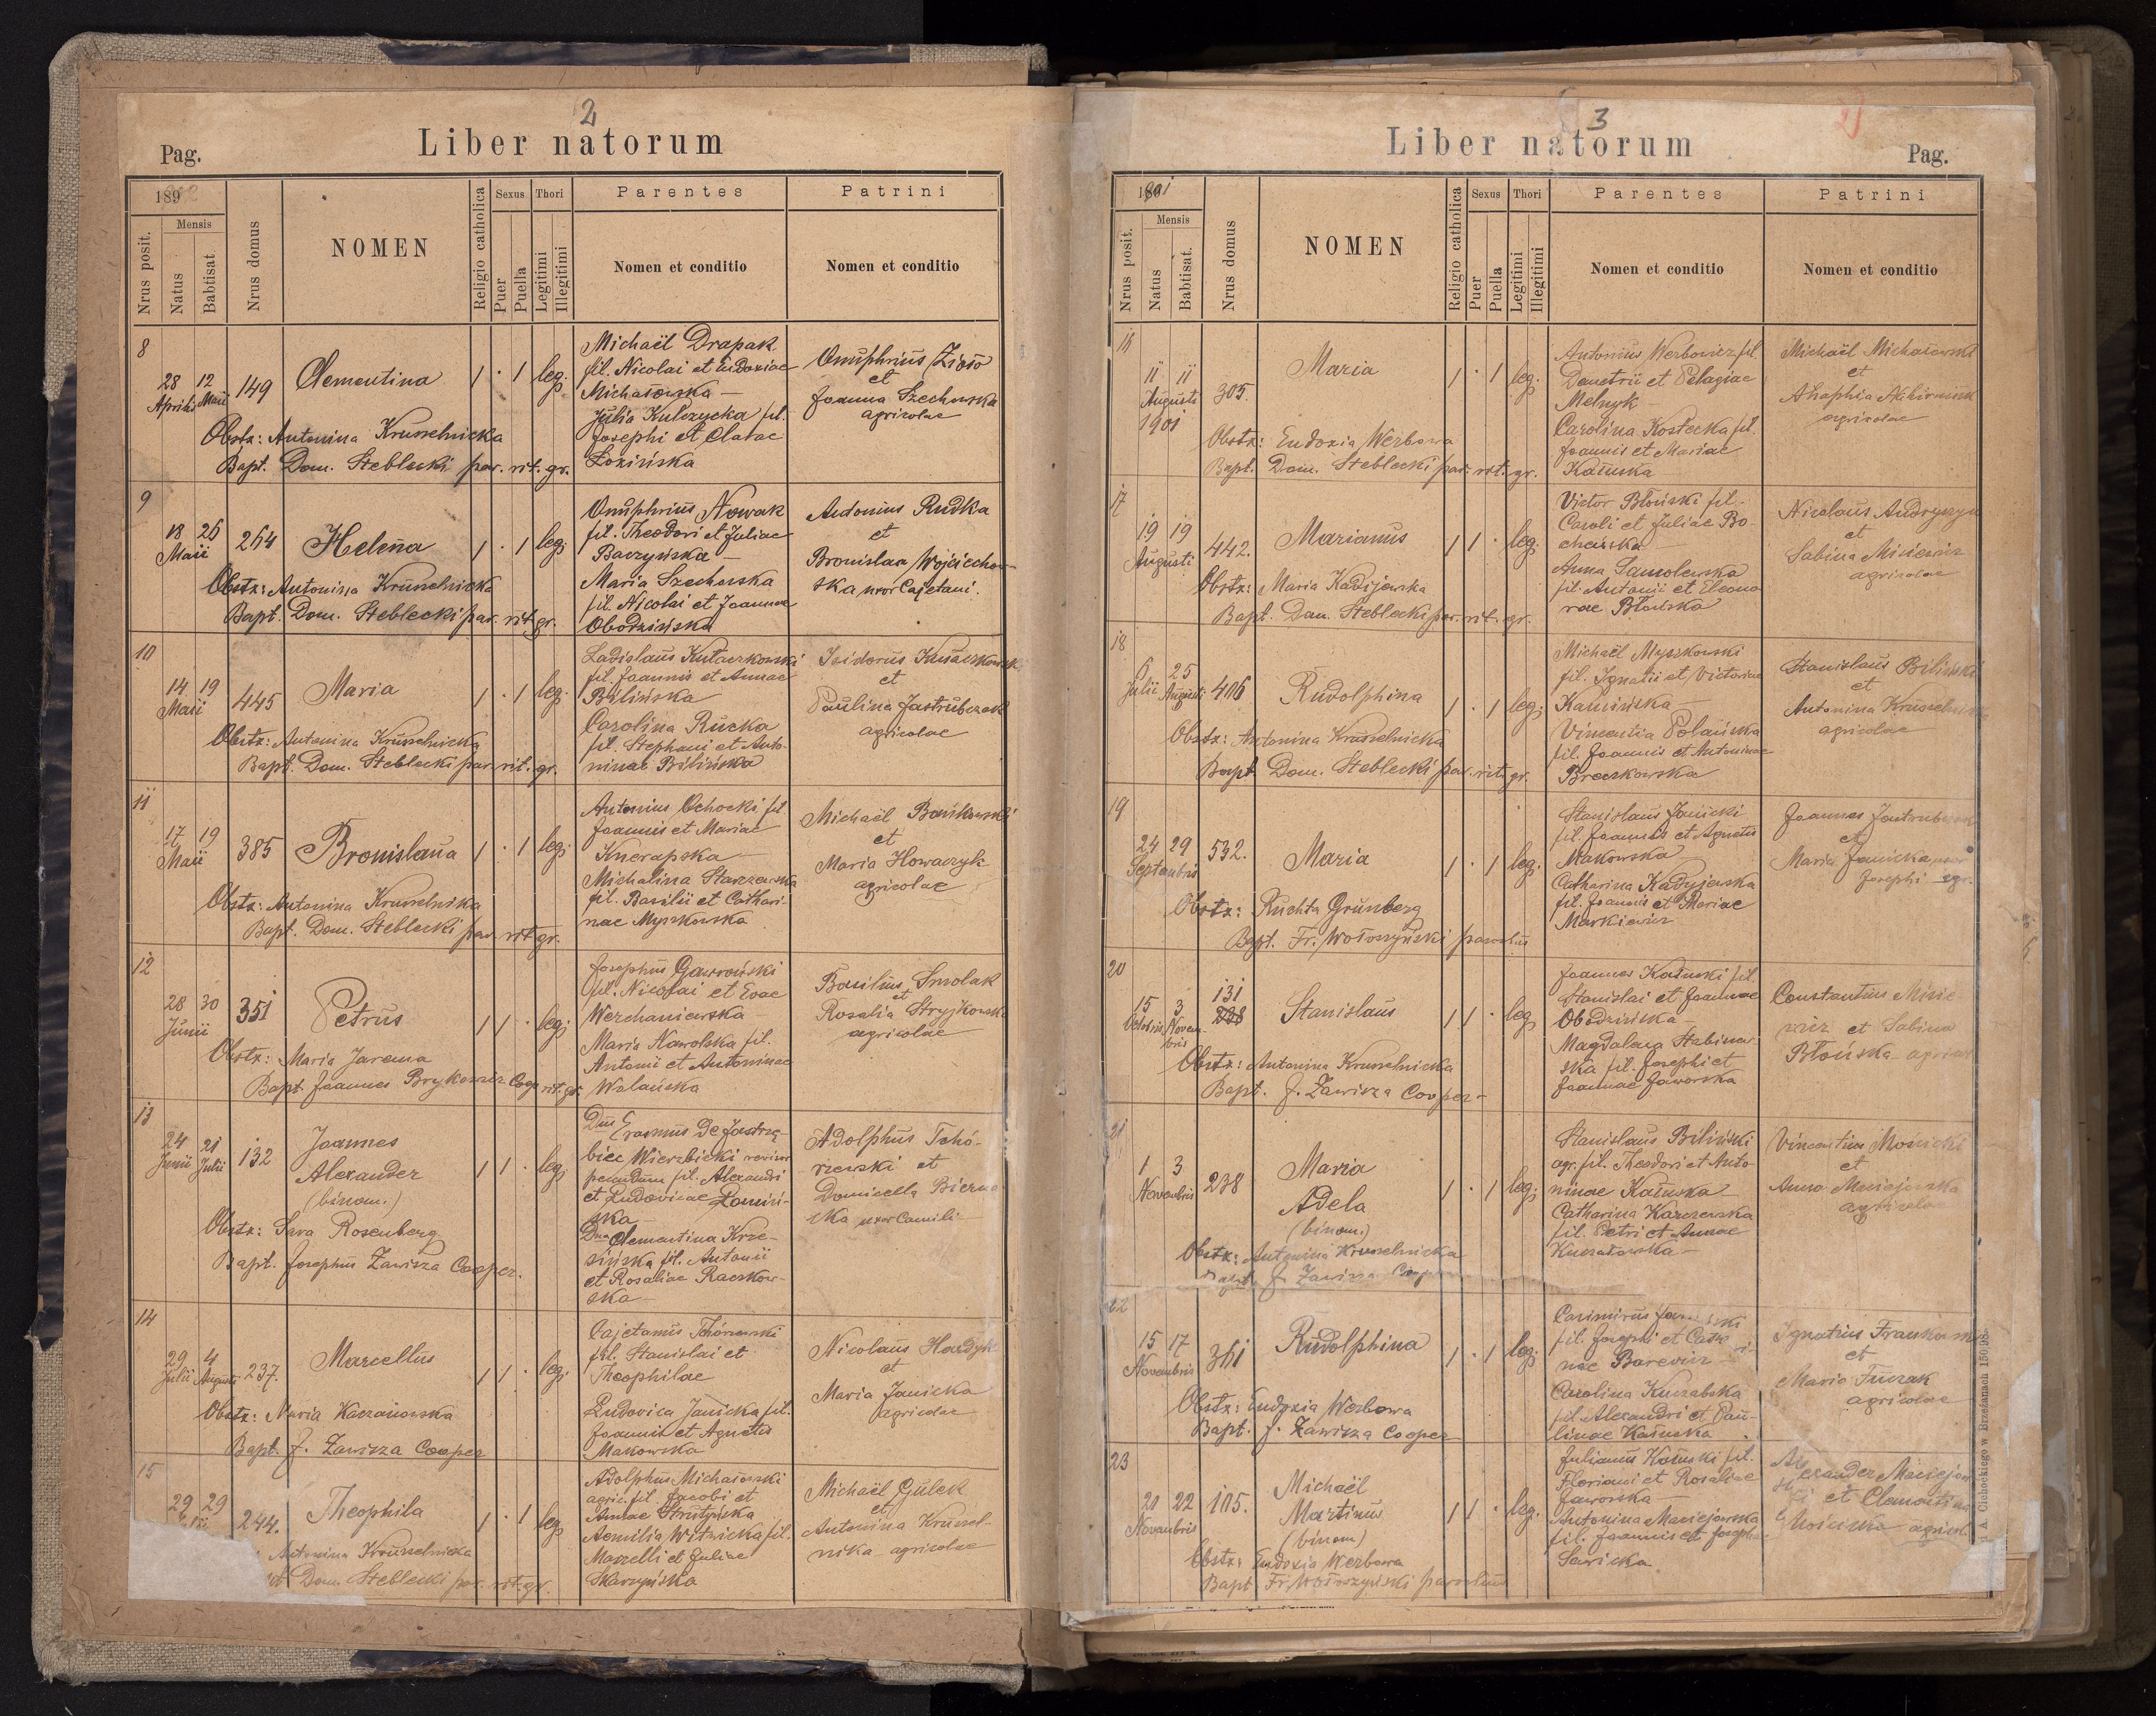 2
Liber natorum
Pag.
189
Nrus posit.
Mensis
Natus
Babtisat.
Nrus domus
NOMEN
Religio catholica
Sexus
Puer
Puella
Thori
Legitimi
Illegitimi
Parentes
Nomen et conditio
Patrini
Nomen et conditio
8
28 12
Aprilis Maii
149
Clementina
1 · 1 leg.
Michaël Drapak
fil. Nicolai et Eudoxiae
Michałowska —
Julia Kulczycka fil.
Josephi et Clarae
Łozińska
Onuphrius Zioło
et
Joanna Szechowska
agricolae
Obstx: Antonina Krusselnicka
Bapt. Dom. Steblecki par. rit. gr.
9
18 26
Maii
264
Helena
1 · 1 leg.
Onuphrius Nowak
fil. Theodori et Juliae
Baczyńska —
Maria Szechowska
fil. Nicolai et Joannae
Obodzińska
Antonius Rudka
et
Bronislava Wojciechow-
ska uxor Cajetani.
Obstx: Antonina Krusselnicka
Bapt. Dom. Steblecki par. rit. gr.
10
14 19
Maii
445
Maria
1 · 1 leg.
Ladislaus Kułaczkowski
fil. Joannis et Annae
Bilińska
Carolina Rucka
fil. Stephani et Anto-
ninae Bilińska
Isidorus Kułaczkowski
et
Paulina Jastrubczak
agricolae
Obstx: Antonina Krusselnicka
Bapt. Dom. Steblecki par. rit. gr.
11
17 19
Maii
385
Bronislaua
1 · 1 leg.
Antonius Ochocki fil.
Joannis et Mariae
Knerapska —
Michalina Starzewska
fil. Basilii et Cathari-
nae Myszkowska
Michaël Bańkowski
et
Maria Howaczyk
agricolae
Obstx: Antonina Krusselnicka
Bapt. Dom. Steblecki par. rit. gr.
12
28 30
Junii
351
Petrus
1 1 · leg.
Josephus Gawroński
fil. Nicolai et Evae
Werchaniewska —
Maria Nawolska fil.
Antonii et Antoninae
Wolańska
Basilius Smolak
et
Rosalia Stryjkowska
agricolae
Obstx: Maria Jarema
Bapt. Joannes Brykowicz Coop. rit. gr.
13
24 21
Junii Julii
132
Joannes
Alexander
(binom.)
1 1 · leg.
Dnus Erasmus de Jastrzę-
biec Wierzbicki
fil. Alexandri
et Ludovicae Łomiń-
ska —
Dna Clementina Krze-
sińska fil. Antonii
et Rosaliae Raczkow-
ska —
Adolphus Tchó-
rzewski et
Domicella Bierna-
cka uxor Camili
Obstx: Sara Rosenberg
Bapt. Josephus Zawisza Cooper.
14
29 4
Julii Augusti
237.
Marcellus
1 1 · leg.
Cajetanus Tchórzewski
fil. Stanislai et
Theophilae
Ludovica Janicka fil.
Joannis et Agnetis
Makowska
Nicolaus Hardyk
et
Maria Janicka
agricolae
Obstx: Maria Kaczanowska
Bapt. J. Zawisza Cooper
15
29 29
244.
Theophila
1 · 1 leg.
Adolphus Michałowski
agric. fil. Jacobi et
Annae Strutyńska
Aemilia Witwicka fil.
Marcelli et Juliae
Skarzyńska
Michaël Gulek
et
Antonina Krussel-
nika agricolae
Antonina Krusselnicka
Dom. Steblecki par. rit. gr.
3
Liber natorum
Pag.
1901
Nrus posit.
Mensis
Natus
Babtisat.
Nrus domus
NOMEN
Religio catholica
Sexus
Puer
Puella
Thori
Legitimi
Illegitimi
Parentes
Nomen et conditio
Patrini
Nomen et conditio
16
11 11
Augusti
1901
305.
Maria
1 · 1 leg.
Antonius Werbowicz fil.
Demetrii et Pelagiae
Melnyk
Carolina Kostecka fil.
Joannis et Mariae
Kałuska
Michaël Michałowski
et
Ahaphia
agricolae
Obstx: Eudoxia Werbowa
Bapt. Dom. Steblecki par. rit. gr.
17
19 19
Augusti
442.
Marianus
1 1 · leg.
Victor Błoński fil.
Caroli et Juliae Bo-
cheńska —
Anna Samolewska
fil. Antonii et Eleono
rae Błońska
Nicolaus Andryszyn
et
Sabina Misiewicz
agricolae
Obstx: Maria Kadijewska
Bapt. Dom. Steblecki par. rit. gr.
18
6 25
Julii Augusti
406
Rudolphina
1 · 1 leg.
Michaël Myszkowski
fil. Ignatii et Victoriae
Kamińska —
Vincentia Polańska
fil. Joannis et Antoninae
Braczkowska
Stanislaus Biliński
et
Antonina Krusselnicka
agricolae
Obstx: Antonina Krusselnicka
Bapt. Dom. Steblecki par. rit. gr.
19
24 29
Septembris
532.
Maria
1 · 1 leg.
Stanislaus Janicki
fil. Joannis et Agnetis
Makowska
Catharina Kadyjewska
fil. Joannis et Mariae
Markiewicz
Joannes Jastrubczak
et
Maria Janicka uxor
Josephi agr.
Obstx: Ruchta Grünberg
Bapt. Fr. Wołoszyński parochus
20
15 3
Octobris Novem-
bris
131
238
Stanislaus
1 1 · leg.
Joannes Kałuski fil.
Stanislai et Joannae
Obodzińska
Magdalena Stabinow
ska fil. Josephi et
Joannae Jaworska
Constantius Misie-
wicz et Sabina
Błońska agricolae
Obstx: Antonina Krusselnicka
Bapt. J. Zawisza Cooper
21
1 3
Novembris
238
Maria
Adela
(binom.)
1 · 1 leg.
Stanislaus Biliński
agr. fil. Theodori et Anto-
ninae Kałuska
Catharina Karczewska
fil. Petri et Annae
Vincentius Mościcki
et
Anna Maciejowska
Obstx: Antonina Krusselnicka
J. Zawisza Coop
22
15 17
Novembris
361
Rudolphina
1 · 1 leg.
Casimirus
fil. Josephi et Catha ri-
nae Barewicz
Carolina Kuczabska
fil. Alexandri et Pau-
linae Kałuska
Ignatius Frankowski
et
Maria Tuczak
agricolae
Obstx: Eudoxia Werbowa
Bapt. J. Zawisza Cooper
23
21 22
Novembris
105.
Michaël
Martinus
(binom)
1 1 · leg.
Julianus Kałuski fil.
Floriani et Rosaliae
Jaworska —
Antonina Maciejowska
fil. Joannis et Josephae
Sawicka
Alexander Maciejow
ski et Clementina
Mościcka agricol.
Obstx: Eudoxia Werbowa
Bapt. Fr. Wołoszyński parochus
A. Cichockiego w Brzeżanach 150|98.